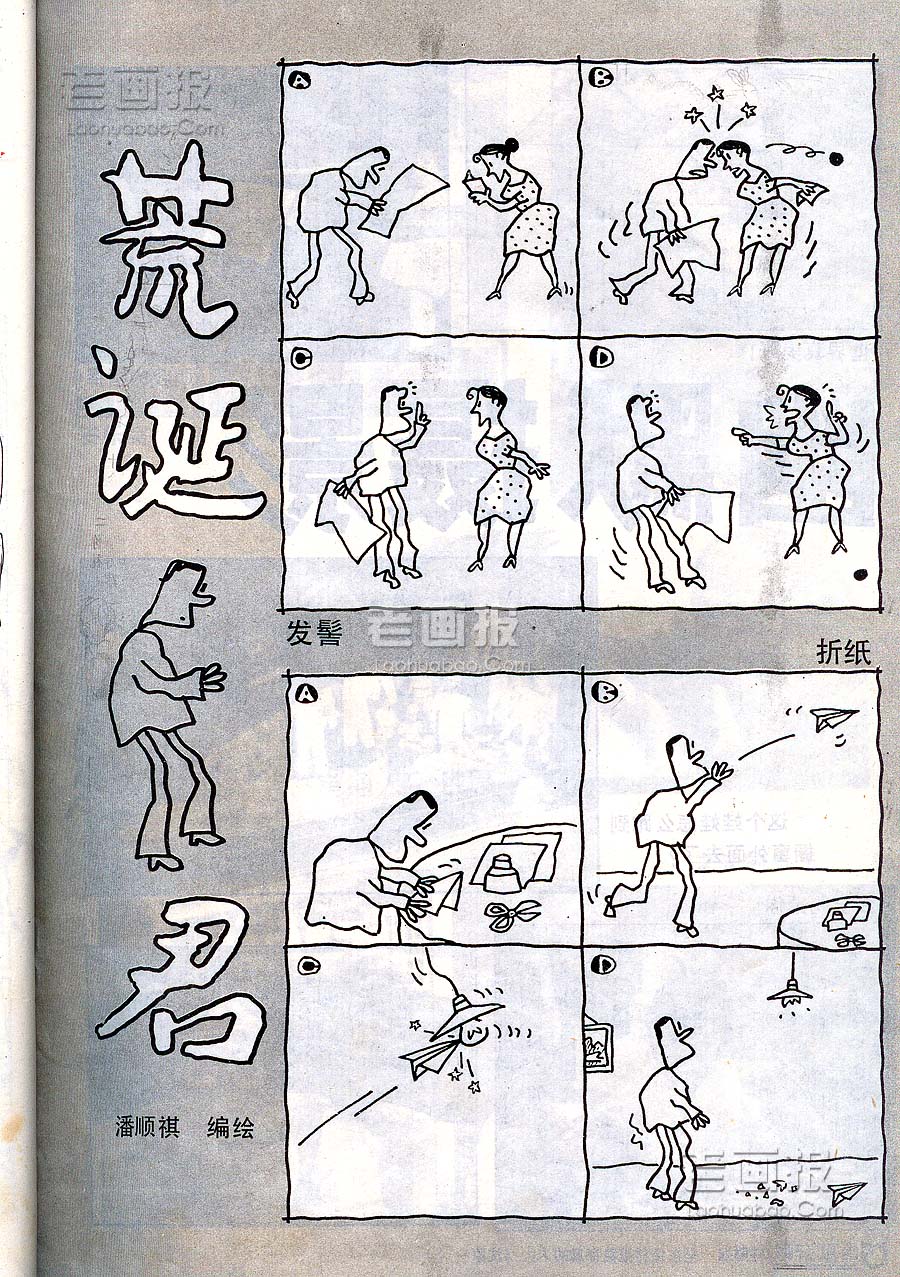 老画报
Laohuabao.Com
荒诞君
潘顺祺 编绘
A
B
C
D
发髻
老画报
Laohuabao.Com
折纸
A
B
C
D
老画报
Laohuabao.Com